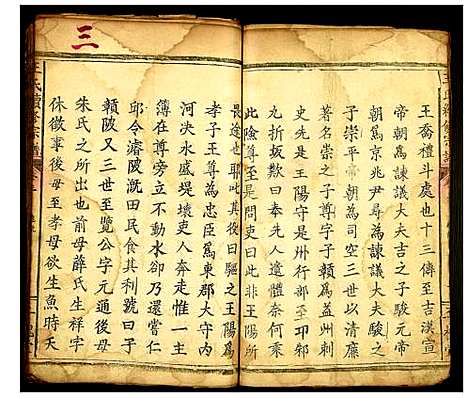 王喬禮斗處也十三傳至吉漢宣
帝朝為諫議大夫吉之子駿元帝
朝為京兆尹尋為諫議大夫駿之
子崇平帝朝為司空三世以清廉
著名崇之子尊字子贛為益州刺
史先是王陽守是州行部至邛郲
九折坂歎曰奉先人遺體奈何乘
此險尊至是問吏曰此非王陽所
畏途也耶叱其後曰驅之王陽為
孝子王尊為忠臣為東郡大守內
河決水盛堤壞吏人奔走惟一主
簿在尊旁立不動水卻乃還嘗仁
邱令濬陂溉田民食其利號曰子
贛陂又三世至覽公字元通後母
朱氏之所出也前母薛氏生祥字
休徵事後母至孝母欲生魚時天
三
王氏續修宗譜
王氏續修宗譜